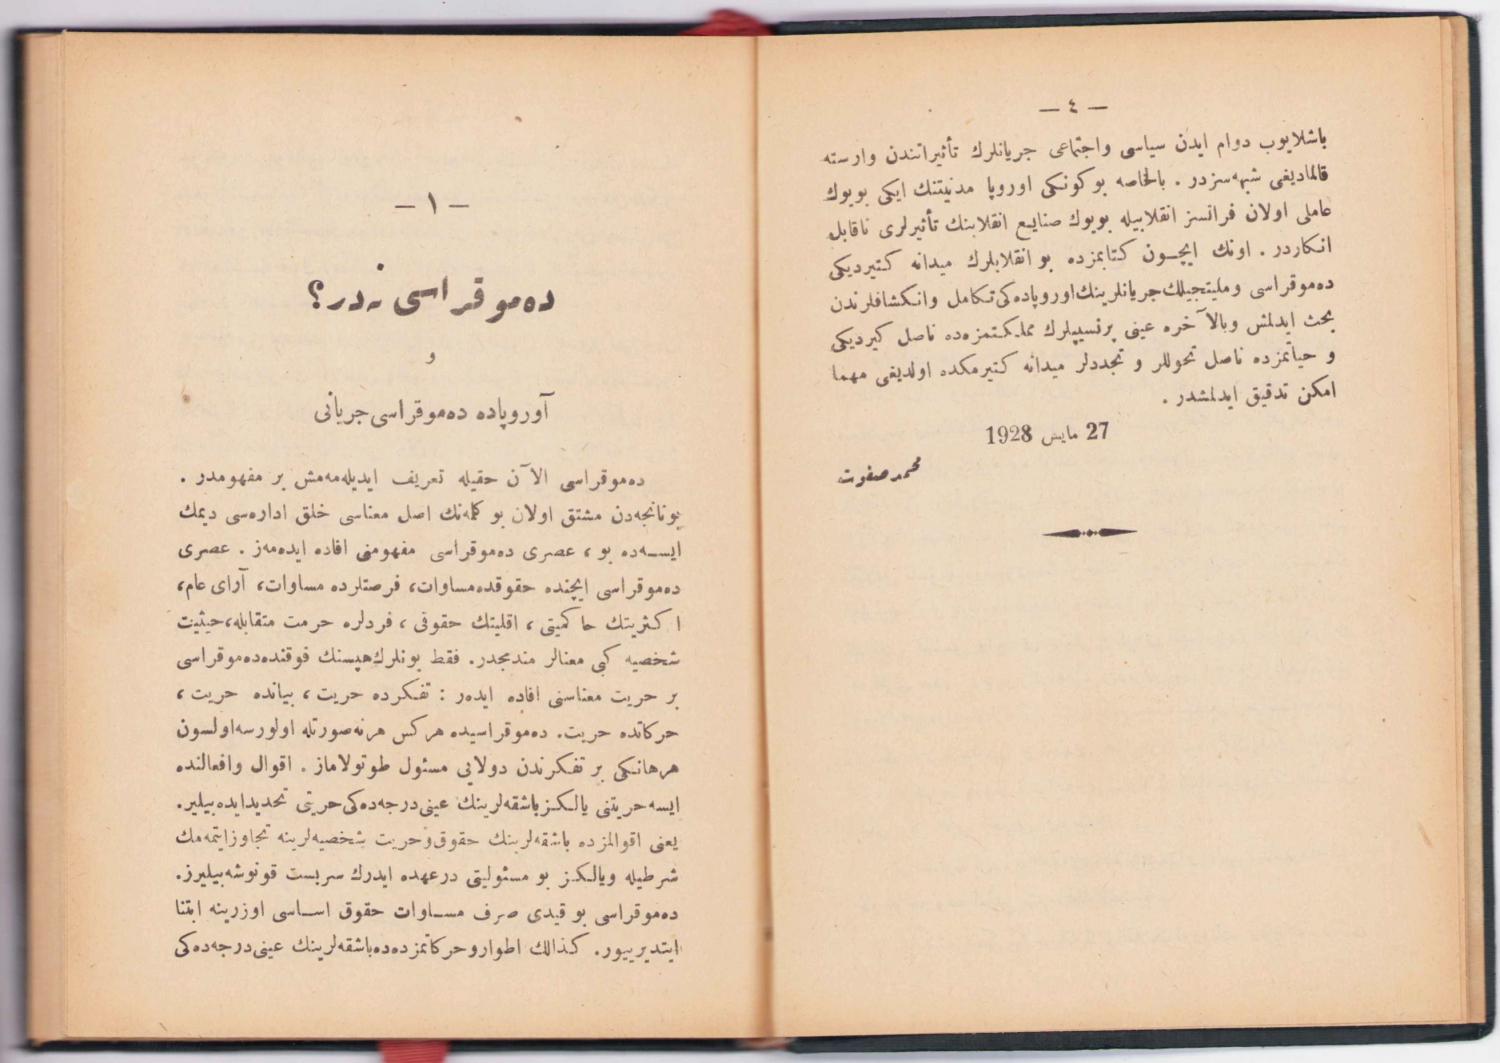 — ٤ —
باشلایوب دوام ایدن سیاسی واجتماعی جریانلرك تأثیراتندن وارسته
قالمادیغی شبهه‌سزدر . بالخاصه بوكونكی اوروپا مدنیتنك ایكی بویوك
عاملی اولان فرانسز انقلابیله بویوك صنایع انقلابنك تأثیرلری ناقابل
انكاردر . اونك ایچون كتابمزده بو انقلابلرك میدانه كتیردیكی
ده‌موقراسی وملیتجیلك جریانلرینك اوروپاده‌كی تكامل وانكشافلرندن
بحث ایدلمش وبالآخره عینی پرنسیپلرك مملكتمزه‌ده ناصل كیردیكی
و حیاتمزده ناصل تحوللر و تجددلر میدانه كتیرمكده اولدیغی مهما
امكن تدقیق ایدلمشدر .
27 مایس 1928
محمد صفوت
— ١ —
ده‌موقراسی نه‌در؟
و
آوروپاده ده‌موقراسی جریانی
ده‌موقراسی الآن حقیله تعریف ایدیله‌مه‌مش بر مفهومدر .
یونانجه‌دن مشتق اولان بو كلمه‌نك اصل معناسی خلق اداره‌سی دیمك
ایسه‌ده بو ، عصری ده‌موقراسی مفهومنی افاده ایده‌مه‌ز . عصری
ده‌موقراسی ایچنده حقوقده‌مساوات، فرصتلرده مساوات، آرای عام،
اكثریتك حاكمیتی ، اقلیتك حقوقی ، فردلره حرمت متقابله، حیثیت
شخصیه كبی معنالر مندمجدر. فقط بونلرك هپسنك فوقنده‌ده‌موقراسی
بر حریت معناسنی افاده ایده‌ر : تفكرده حریت ، بیانده حریت ،
حركاتده حریت. ده‌موقراسیده هركس هرنه‌صورتله اولورسه‌اولسون
هرهانكی بر تفكرندن دولایی مسئول طوتولاماز . اقوال وافعالنده
ایسه حریتنی یالكز باشقه‌لرینك عینی درجه‌ده‌كی حریتی تحدیدایده‌بیلیر.
یعنی اقوالمزده باشقه‌لرینك حقوق و حریت شخصیه‌لرینه تجاوزایتمه‌مك
شرطیله ویالكز بو مسئولیتی درعهده ایدرك سربست قونوشه‌بیلیرز.
ده‌موقراسی بو قیدی صرف مساوات حقوق اساسی اوزرینه ابتنا
ایتدیرییور. كذالك اطوار وحركاتمزده‌ده‌باشقه‌لرینك عینی‌درجه‌ده‌كی